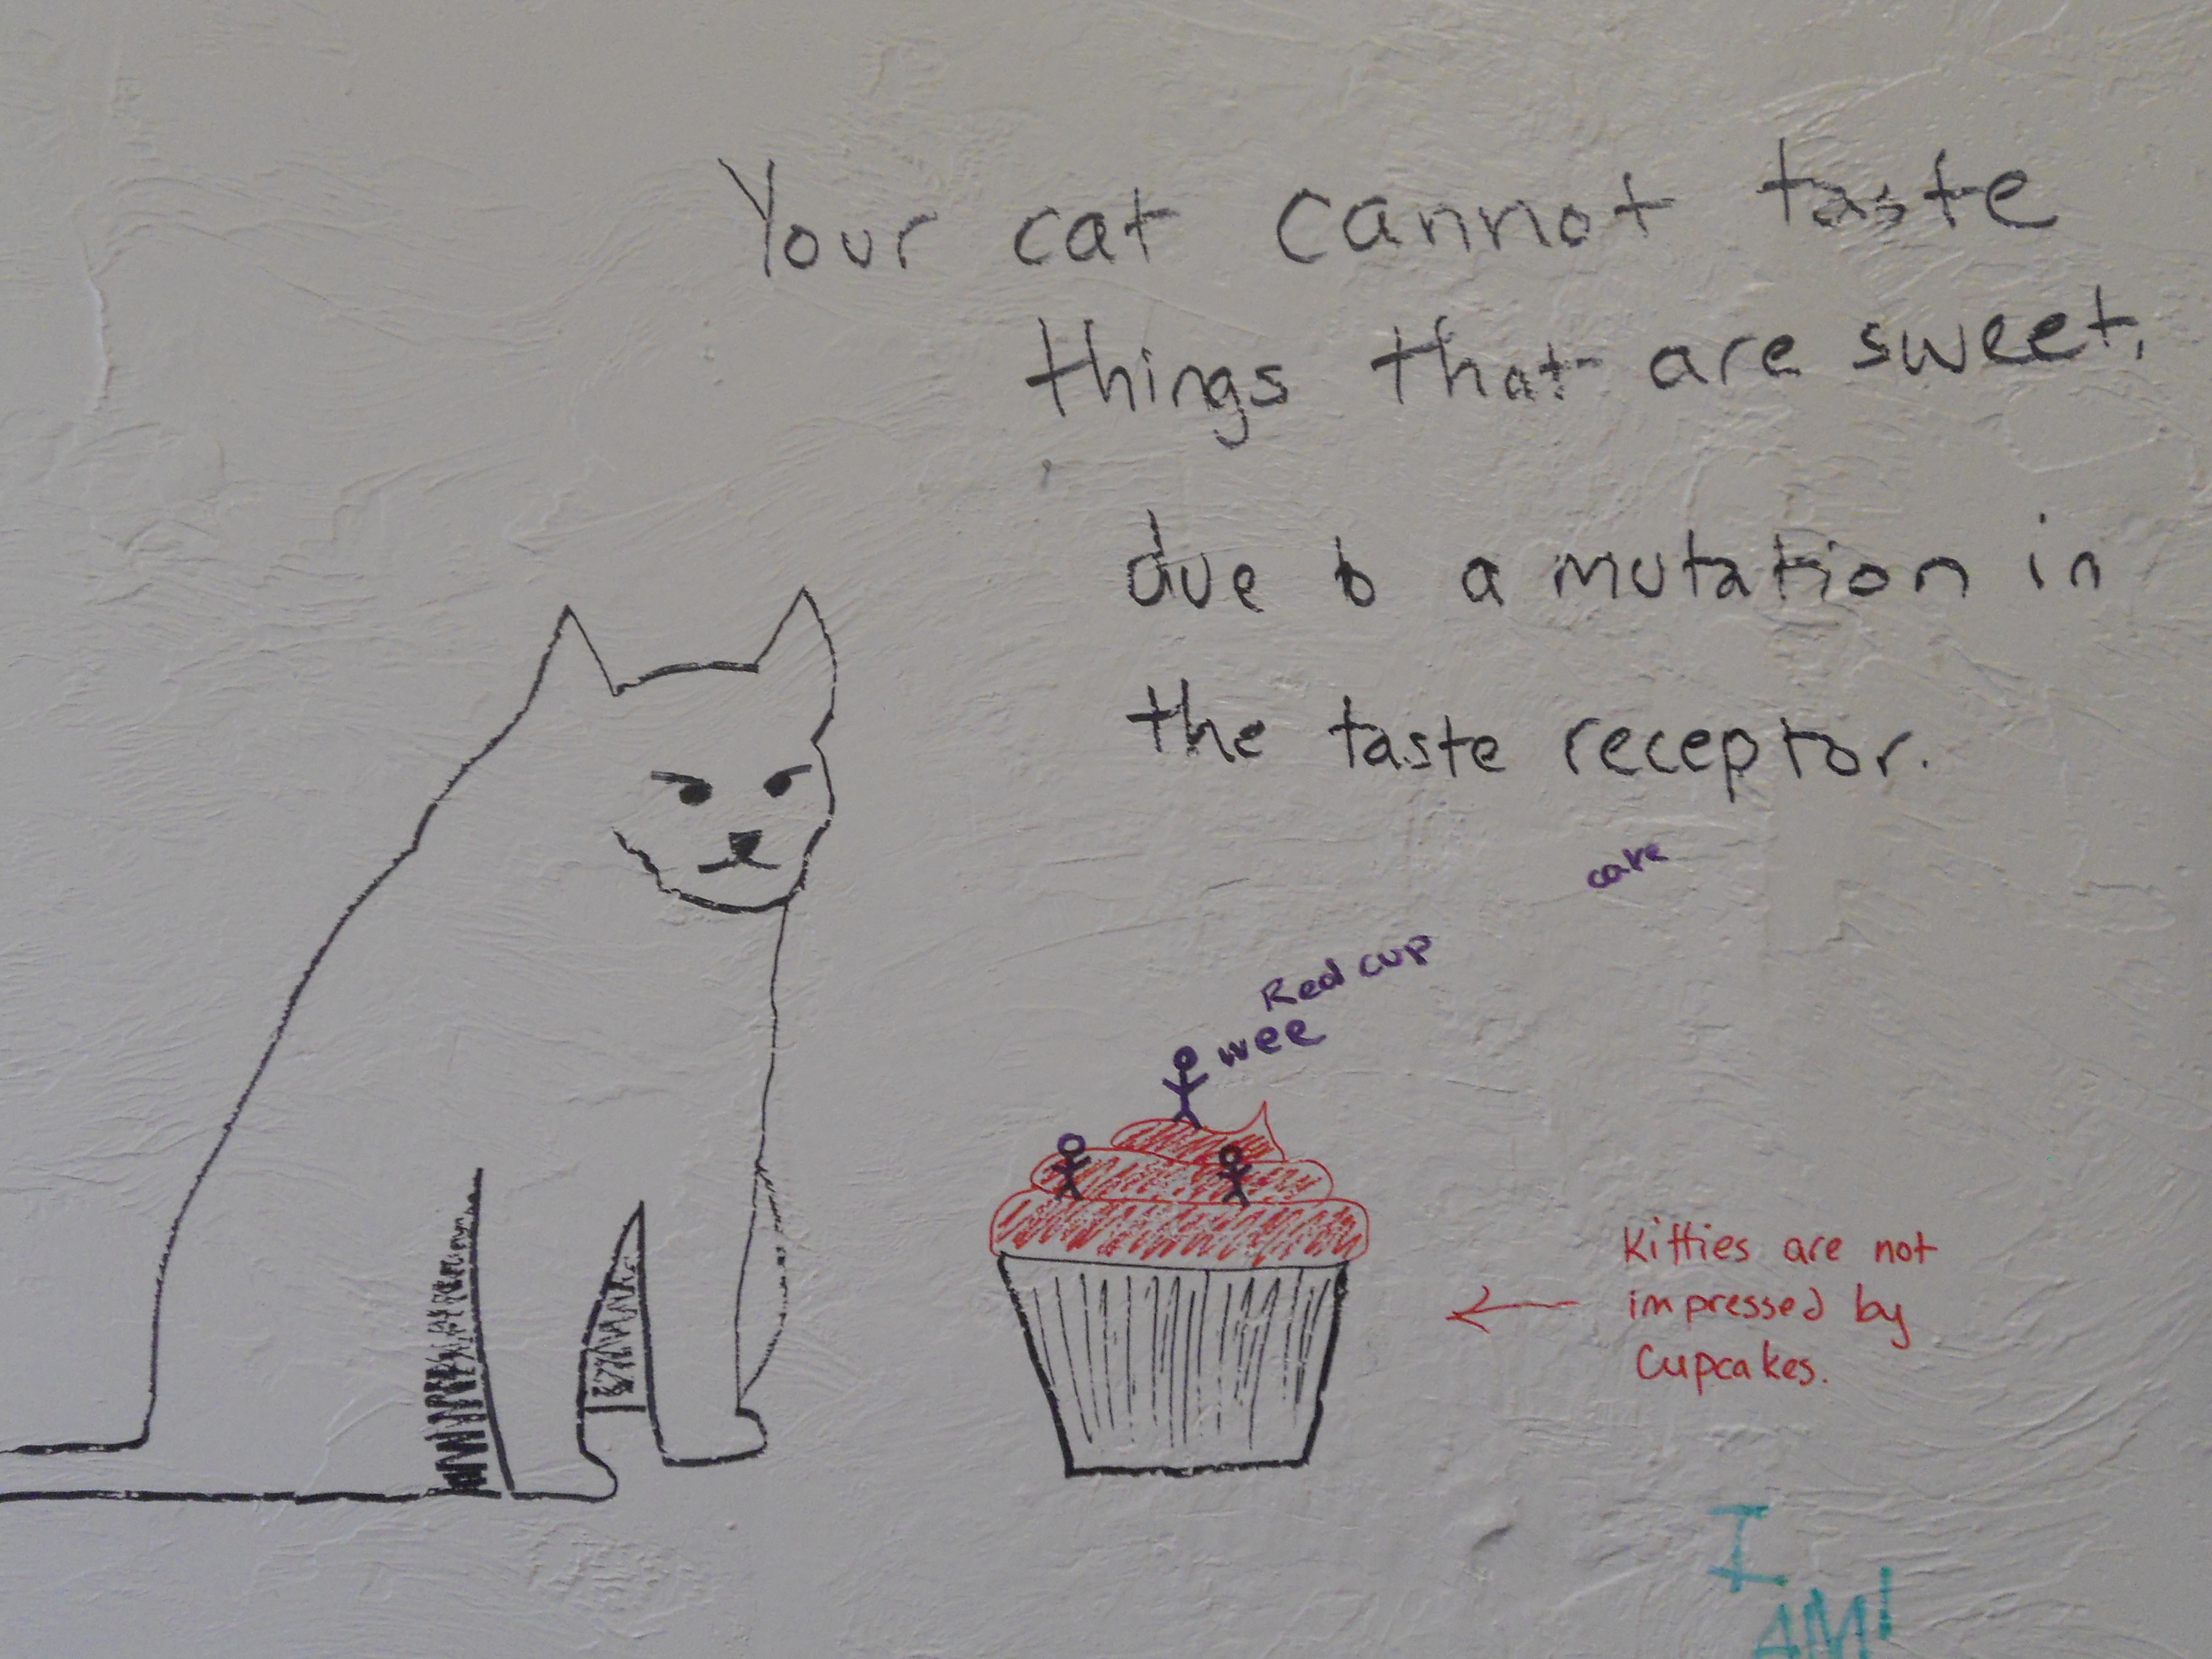 Your cat cannot taste
things that are sweet,
due to a mutation in
the taste receptor.
cake
Red cup
wee
Kitties are not
impressed by
Cupcakes.
I
AM!